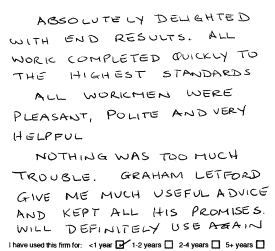 ABSOLUTELY DELIGHTED
WITH END RESULTS. ALL
WORK COMPLETED QUICKLY TO
THE HIGHEST STANDARDS
ALL WORKMEN WERE
PLEASANT, POLITE AND VERY
HELPFUL
NOTHING WAS TOO MUCH
TROUBLE. GRAHAM LETFORD
GIVE ME MUCH USEFUL ADVICE
AND KEPT ALL HIS PROMISES.
WILL DEFINITELY USE AGAIN
I have used this firm for: <1 year ☑ 1-2 years ☐ 2-4 years ☐ 5+ years ☐